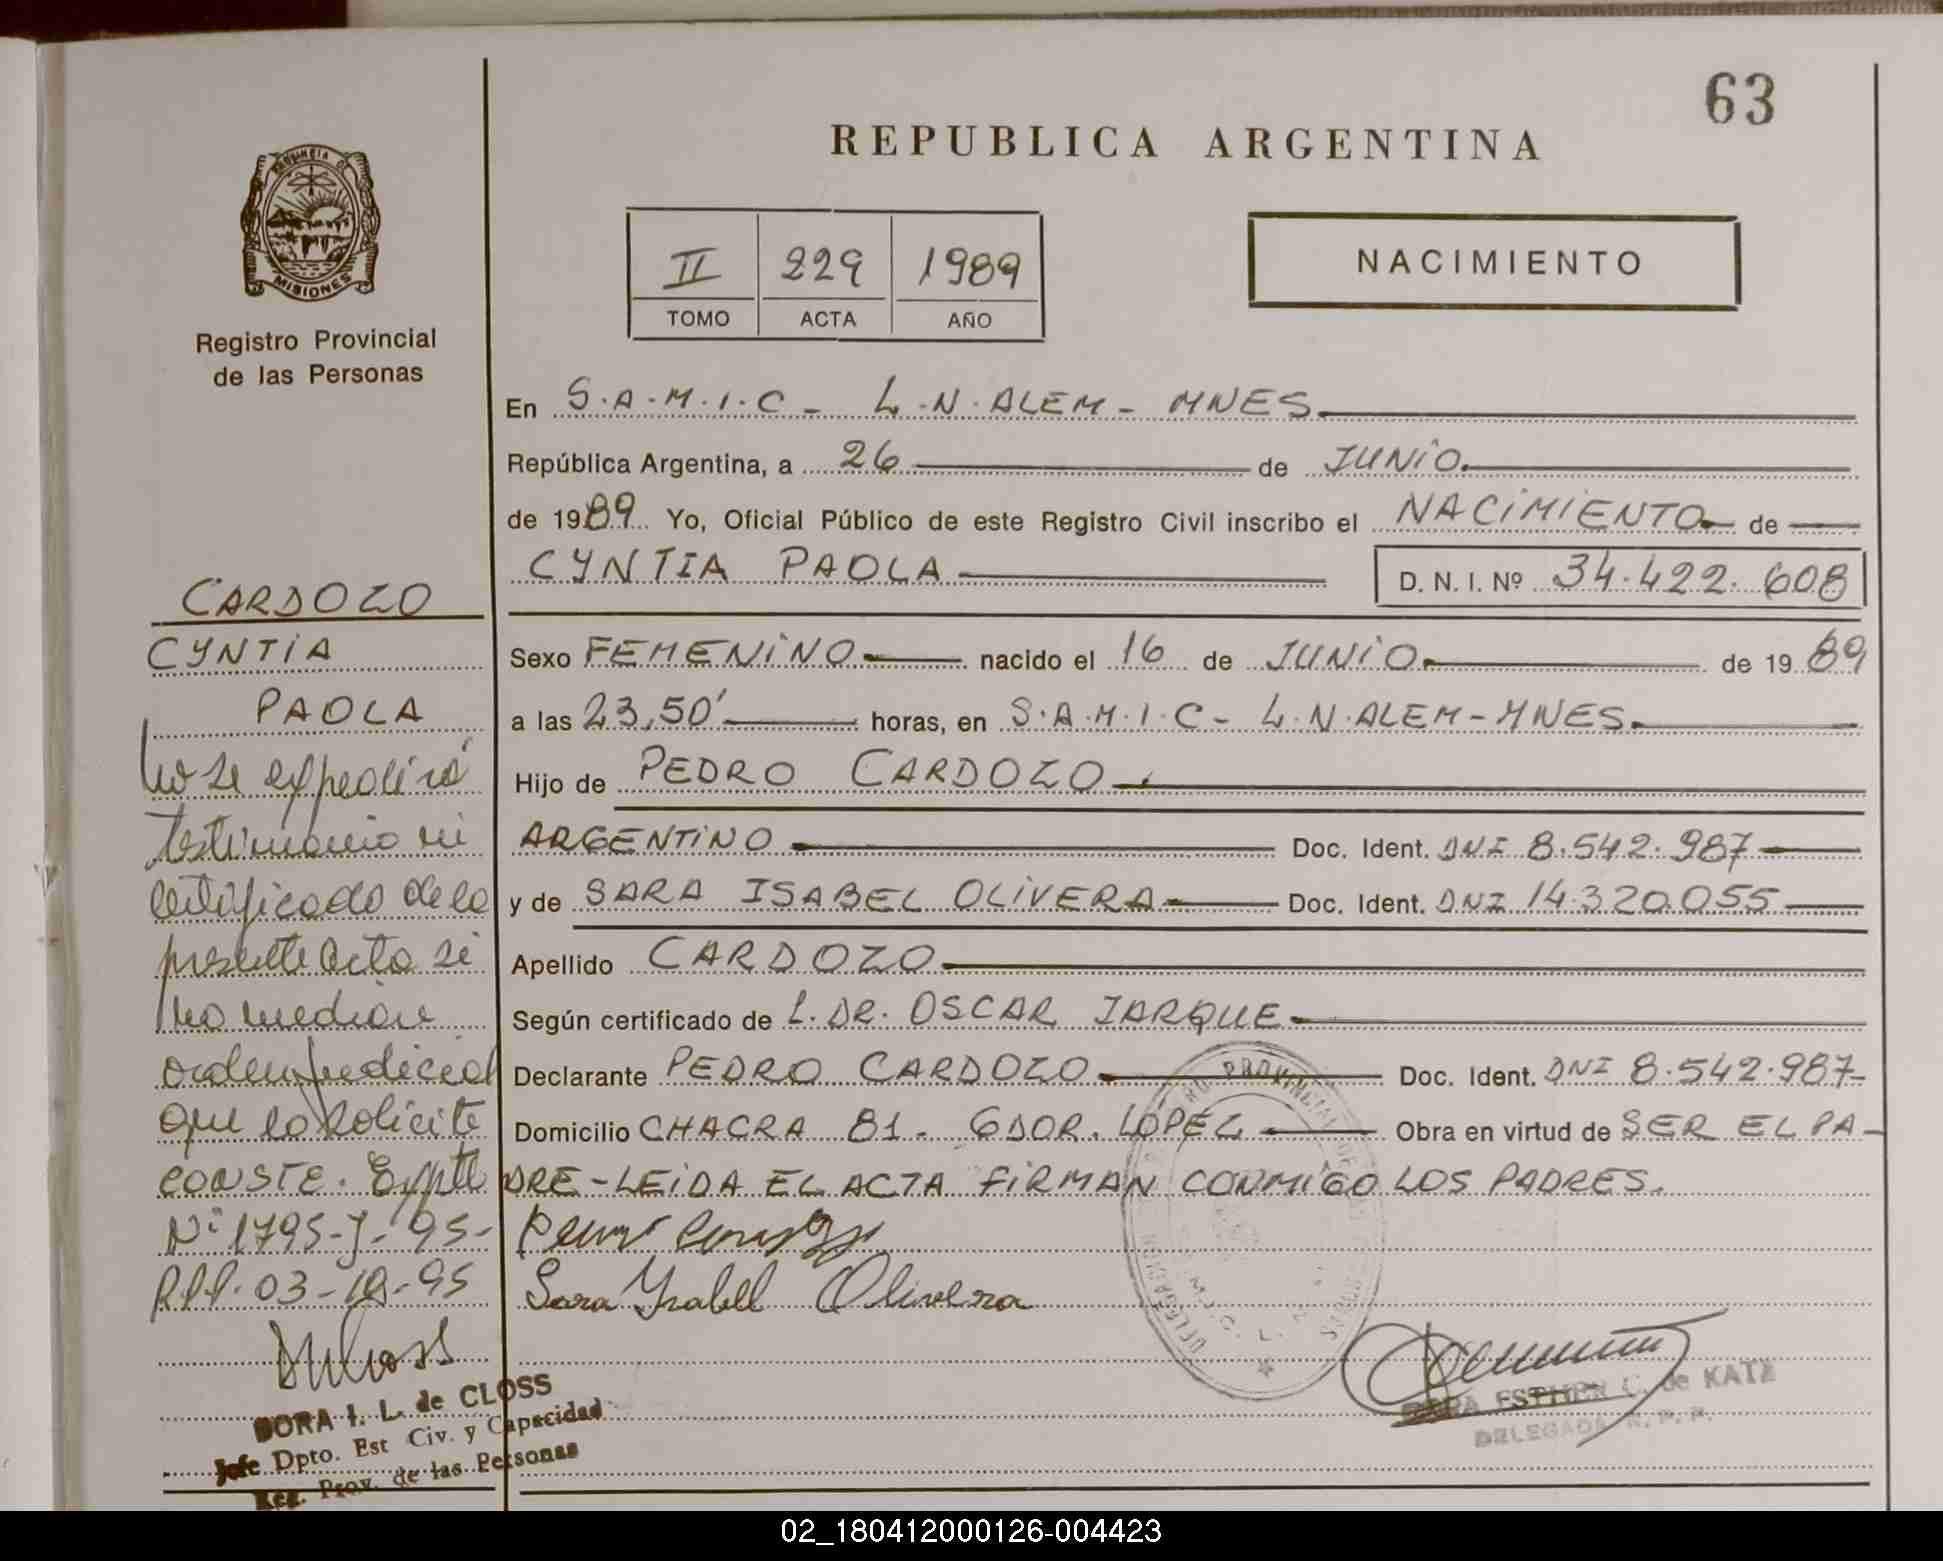 63
REPUBLICA ARGENTINA
PROVINCIA DE
MISIONES
Registro Provincial
de las Personas
II 229 1989
TOMO ACTA AÑO
NACIMIENTO
En S.A.M.I.C - L.N.ALEM - MNES
República Argentina, a 26 de JUNIO
de 1989 Yo, Oficial Público de este Registro Civil inscribo el NACIMIENTO de
CYNTIA PAOLA D. N. I. Nº 34.422.608
Sexo FEMENINO nacido el 16 de JUNIO de 1989
a las 23,50' horas, en S.A.M.I.C - L.N.ALEM - MNES.
Hijo de PEDRO CARDOZO
ARGENTINO Doc. Ident. DNI 8.542.987
y de SARA ISABEL OLIVERA Doc. Ident. DNI 14.320.055
Apellido CARDOZO
Según certificado de L. DR. OSCAR JARQUE
Declarante PEDRO CARDOZO Doc. Ident. DNI 8.542.987-
Domicilio CHACRA 81. GDOR. LOPEZ Obra en virtud de SER EL PA-
DRE - LEIDA EL ACTA FIRMAN CONMIGO LOS PADRES.
Sara Ysabel Olivera
ESTHER C. de KATZ
DELEGADA R. P. P.
CARDOZO
CYNTIA
PAOLA
No se expedirá
testimonio ni
certificado de la
presente acta si
no mediare
orden judicial
que lo solicite
CONSTE. Expte
Nº 1795-J-95-
R.P.P. 03-10-95
DORA I. L. de CLOSS
Jefe Dpto. Est Civ. y Capacidad
Reg. Prov. de las Personas
02_180412000126-004423